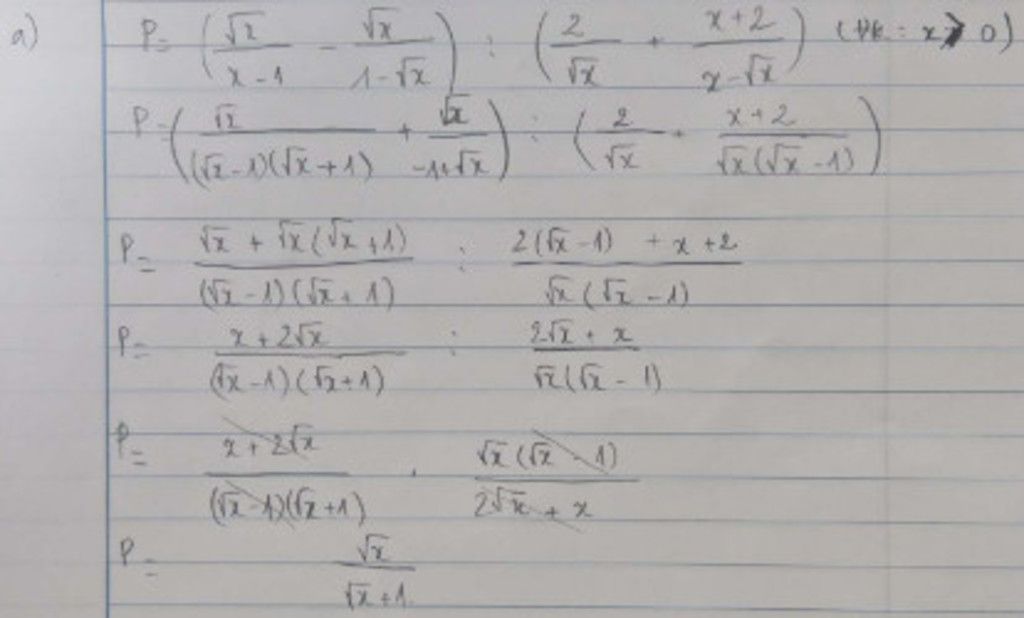 a) P = (√x / (x - 1) - √x / (1 - √x)) : (2 / √x + (x + 2) / (x - √x)) (ĐK: x > 0)
P = (√x / ((√x - 1)(√x + 1)) + √x / (-1 + √x)) : (2 / √x + (x + 2) / (√x(√x - 1)))
P = (√x + √x(√x + 1)) / ((√x - 1)(√x + 1)) : (2(√x - 1) + x + 2) / (√x(√x - 1))
P = (x + 2√x) / ((√x - 1)(√x + 1)) : (2√x + x) / (√x(√x - 1))
P = (x + 2√x) / ((√x - 1)(√x + 1)) . (√x(√x - 1)) / (2√x + x)
P = √x / (√x + 1)